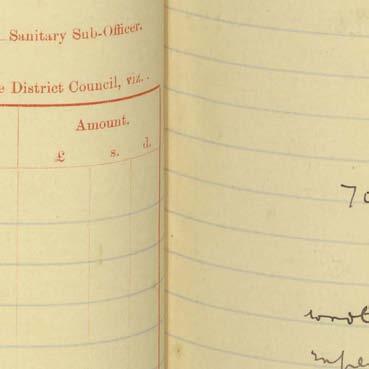 Sanitary Sub-Officer.
e District Council, viz.
Amount.
£ s. d.